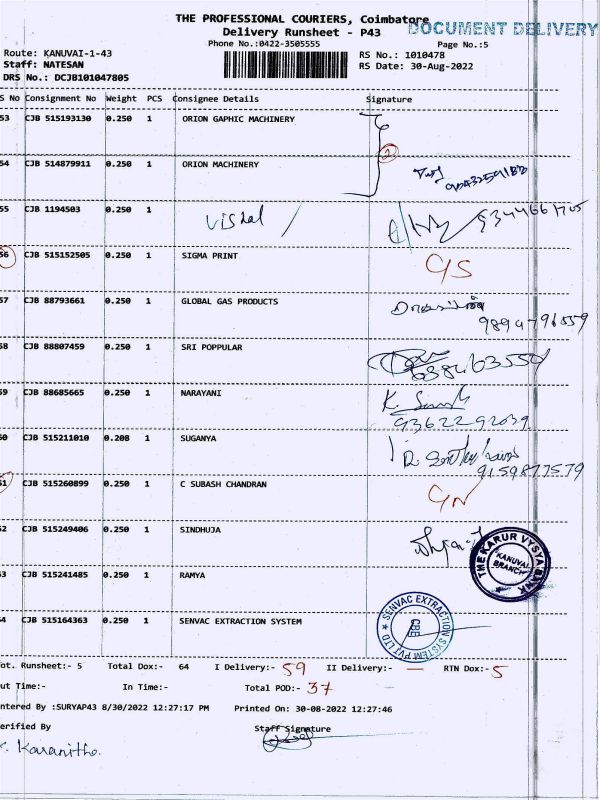 THE PROFESSIONAL COURIERS, Coimbatore
DOCUMENT DELIVERY
Delivery Runsheet - P43
Phone No.:0422-3505555
Page No.:5
Route: KANUVAI-1-43
RS No.: 1010478
Staff: NATESAN
RS Date: 30-Aug-2022
DRS No.: DCJB101047805
S No Consignment No Weight PCS Consignee Details Signature
53 CJB 515193130 0.250 1 ORION GAPHIC MACHINERY
2
54 CJB 514879911 0.250 1 ORION MACHINERY
55 CJB 1194503 0.250 1 Vishal / 9344661705
56 CJB 515152505 0.250 1 SIGMA PRINT C/S
57 CJB 88793661 0.250 1 GLOBAL GAS PRODUCTS
9894796559
58 CJB 88807459 0.250 1 SRI POPPULAR
6384603554
59 CJB 88685665 0.250 1 NARAYANI K.
9362292039
60 CJB 515211010 0.208 1 SUGANYA
9159877579
61 CJB 515260899 0.250 1 C SUBASH CHANDRAN
62 CJB 515249406 0.250 1 SINDHUJA
THE KARUR VYSYA BANK
KANUVAI BRANCH
63 CJB 515241485 0.250 1 RAMYA
64 CJB 515164363 0.250 1 SENVAC EXTRACTION SYSTEM
SENVAC EXTRACTION SYSTEM PVT LTD ★
CBE
ot. Runsheet:- 5 Total Dox:- 64 I Delivery:- 59 II Delivery:- — RTN Dox:- 5
ut Time:- In Time:- Total POD:- 37
ntered By :SURYAP43 8/30/2022 12:27:17 PM Printed On: 30-08-2022 12:27:46
erified By Staff Signature